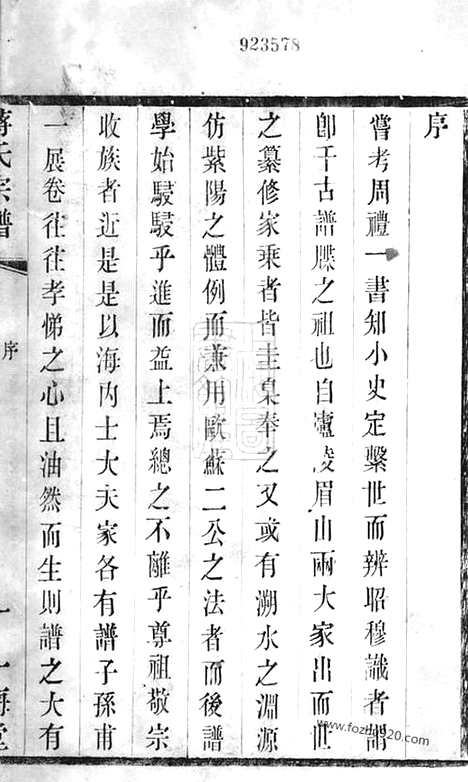 923578
序
嘗考周禮一書知小史定繫世而辨昭穆識者謂
卽千古譜牒之祖也自廬陵眉山兩大家出而世
之纂修家乘者皆圭臬奉之又或有溯水之淵源
仿紫陽之體例而兼用歐蘇二公之法者而後譜
學始駸駸乎進而益上焉總之不離乎尊祖敬宗
收族者近是是以海内士大夫家各有譜子孫甫
一展卷往往孝悌之心且油然而生則譜之大有
蔣氏宗譜
序
一
海堂
www.fozhu920.com